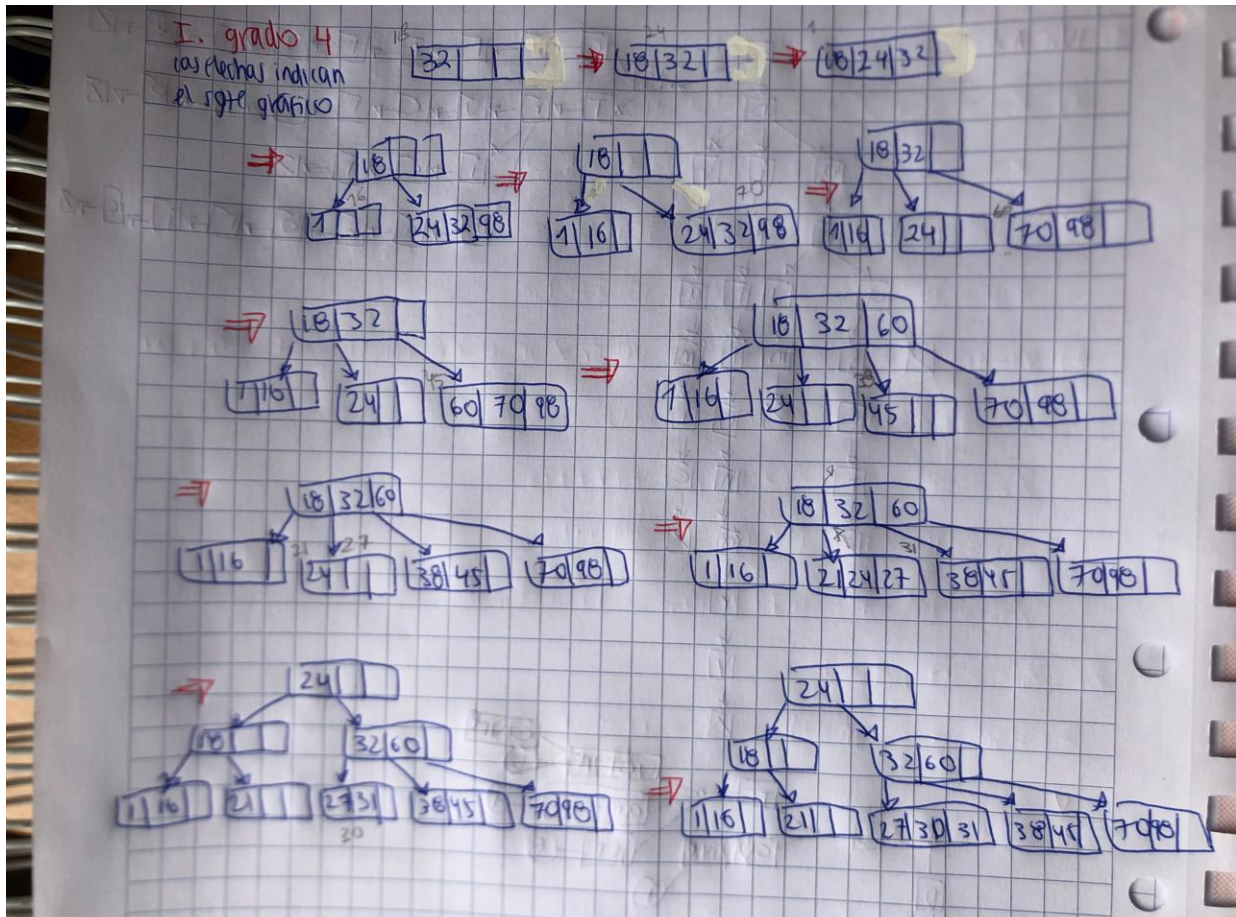 I. grado 4
las flechas indican
el sgte gráfico
18
32
⇒
24
18 32
⇒
1
18 24 32
⇒
18
16
1
24 32 98
⇒
18
70
1 16
24 32 98
⇒
18 32
1 16
24
70 98
⇒
18 32
45
1 16
24
60 70 98
⇒
18 32 60
38
1 16
24
45
70 98
⇒
18 32 60
21 27
1 16
24
38 45
70 98
⇒
18 32 60
31
1 16
21 24 27
38 45
70 98
⇒
24
18
32 60
1 16
21
27 31
38 45
70 98
30
⇒
24
18
32 60
1 16
21
27 30 31
38 45
70 98